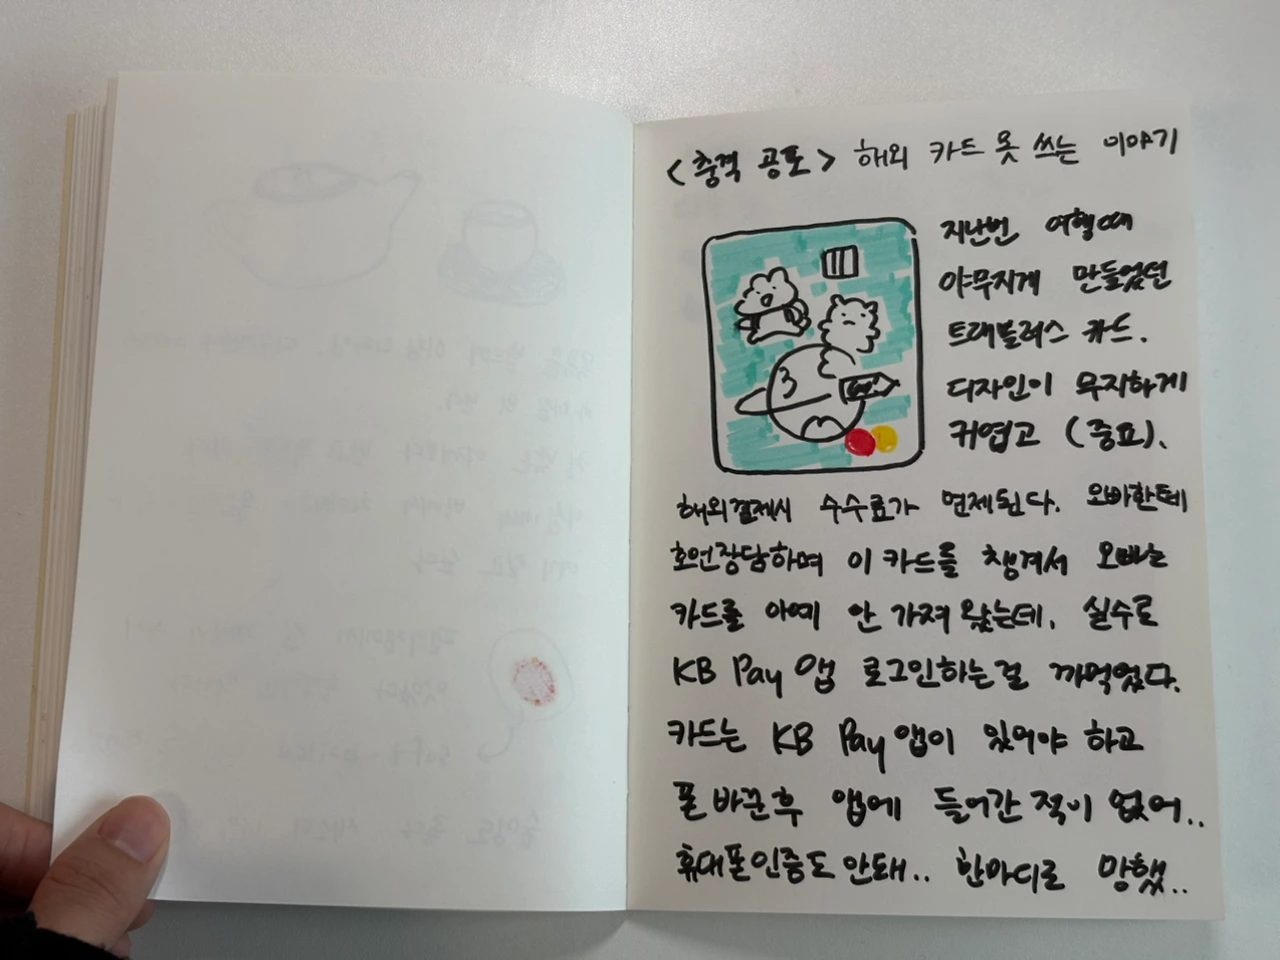 <충격 공포> 해외 카드 못 쓰는 이야기
지난번 여행때
야무지게 만들었던
트래블러스 카드.
디자인이 무지하게
귀엽고 (중요).
해외결제시 수수료가 면제된다. 오빠한테
호언장담하며 이 카드를 챙겨서 오빠는
카드를 아예 안 가져왔는데, 실수로
KB Pay 앱 로그인하는걸 까먹었다.
카드는 KB Pay 앱이 있어야 하고
폰 바꾼 후 앱에 들어간 적이 없어..
휴대폰인증도 안돼.. 한마디로 망했..